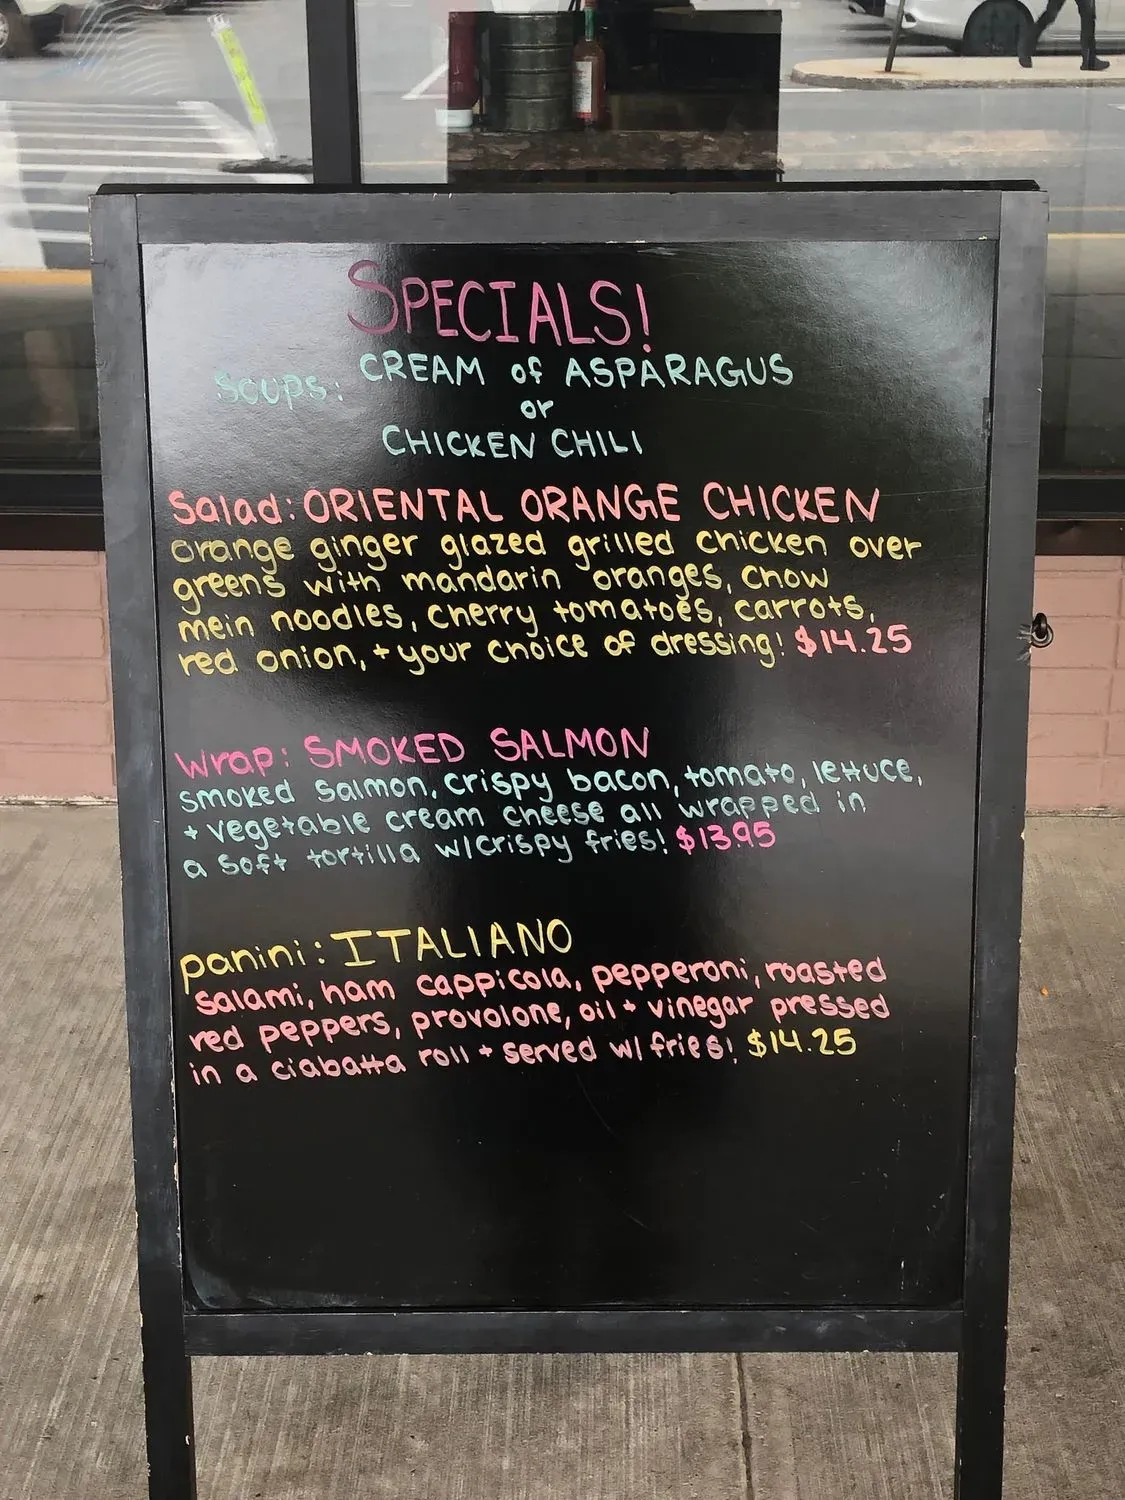 SPECIALS!
SOUPS: CREAM of ASPARAGUS
or
CHICKEN CHILI
Salad: ORIENTAL ORANGE CHICKEN
orange ginger glazed grilled chicken over
greens with mandarin oranges, chow
mein noodles, cherry tomatoes, carrots,
red onion, + your choice of dressing! $14.25
Wrap: SMOKED SALMON
smoked salmon, crispy bacon, tomato, lettuce,
+ vegetable cream cheese all wrapped in
a soft tortilla w/crispy fries! $13.95
panini: ITALIANO
salami, ham cappicola, pepperoni, roasted
red peppers, provolone, oil + vinegar pressed
in a ciabatta roll + served w/ fries! $14.25